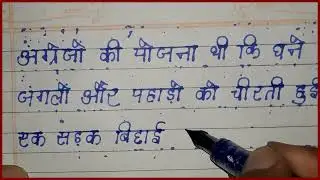 अंग्रेजों की योजना थी कि घने
जंगलों और पहाड़ों को चीरती हुई
एक सड़क बिछाई